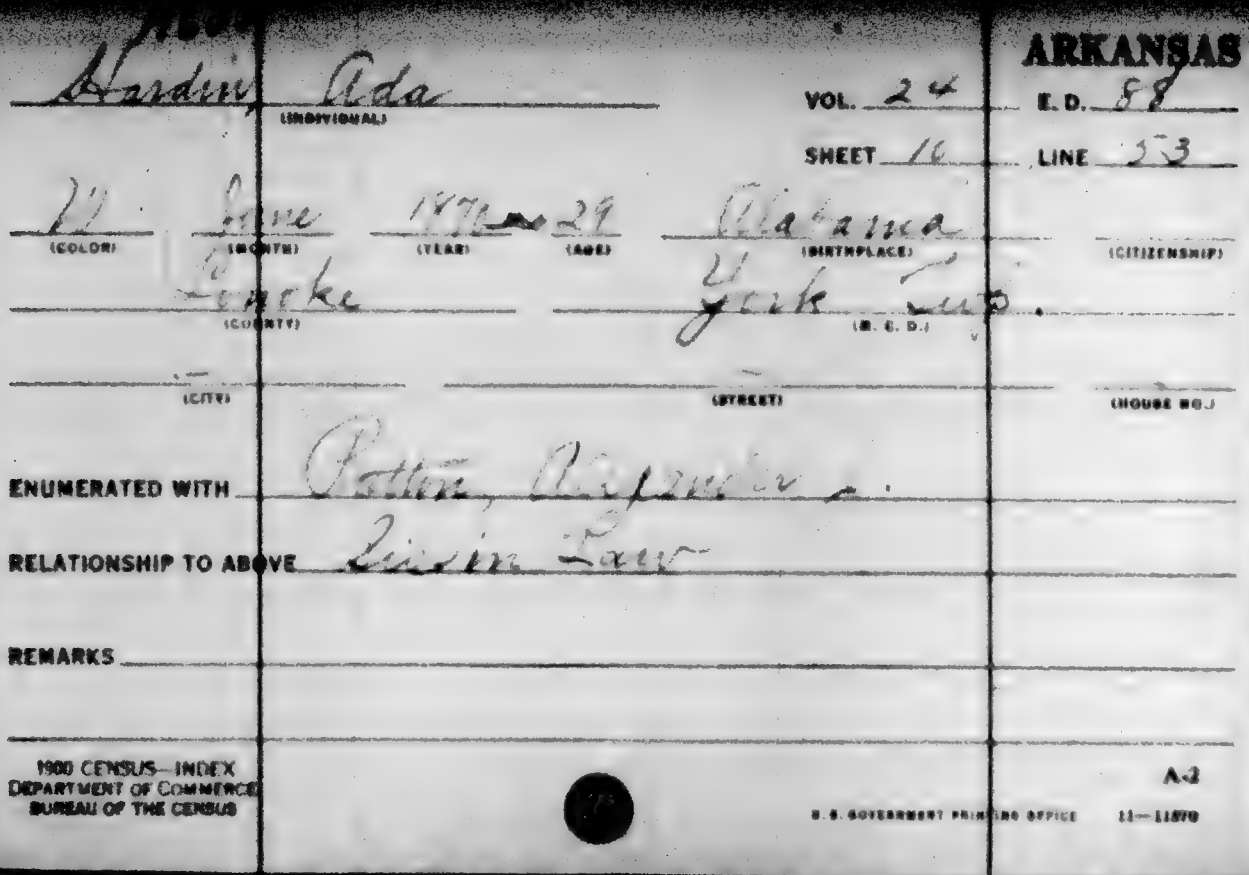 ARKANSAS
Hardin, Ada
(INDIVIDUAL)
VOL. 24 E. D. 88
SHEET 10 LINE 53
W June 29 Alabama
(COLOR) (MONTH) (YEAR) (AGE) (BIRTHPLACE) (CITIZENSHIP)
Lonoke York Twp.
(COUNTY) (M. C. D.)
(CITY) (STREET) (HOUSE NO.)
ENUMERATED WITH
RELATIONSHIP TO ABOVE in Law
REMARKS
1900 CENSUS—INDEX
DEPARTMENT OF COMMERCE
BUREAU OF THE CENSUS
A-2
U.S. GOVERNMENT PRINTING OFFICE 11—11870